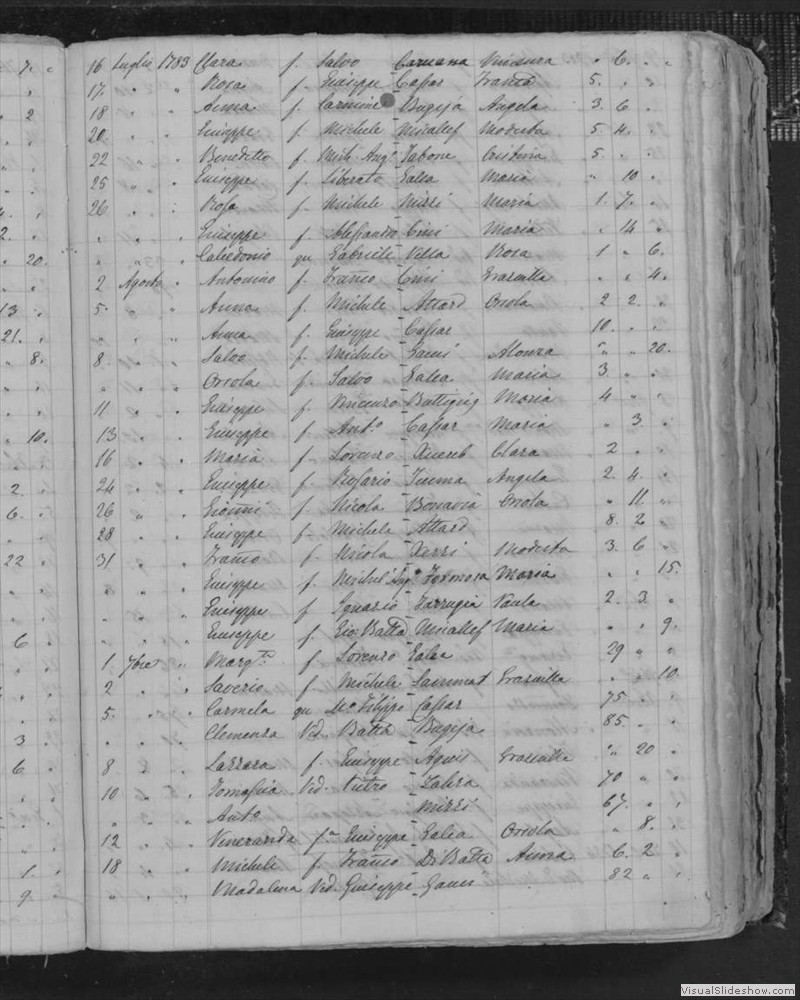 7. 16 Luglio 1783 Clara f. Salvo Caruana Vincenza " 6. "
17 " " Rosa f. Giuseppe Cassar Franca 5. " "
2 18 " " Anna f. Carmine Bugeja Angela 3. 6 "
20 " " Giuseppe f. Michele Micallef Modesta 5. 4. "
22 " " Benedetto f. Mich. Angº Tabone Cristina 5. " "
25 " " Giuseppe f. Liberato Galea Maria " 10 "
26 " " Rosa f. Michele Mizzi Maria 1. 7. "
2. " " " Giuseppe f. Alessandro Cini Maria " 14 "
20. " " " Calcedonio qu Gabriele Villa Rosa 1 " 6.
2 Agosto " Antonino f. Franco Cini Graziulla " " 4.
13 5. " " Anna f. Michele Attard Orsola 2 2. "
21. " " " Anna f. Giuseppe Cassar 10. " "
8. 8. " " Salvo f. Michele Gauci Alonza " " 20.
" " " Orsola f. Salvo Galea Maria 3 " "
11 " " Giuseppe f. Vincenzo Buttigieg Maria 4 " "
10. 13 " " Giuseppe f. Antº Cassar Maria " 3. "
16 " " Maria f. Lorenzo Xuereb Clara 2 " "
2. 24 " " Giuseppe f. Rosario Angela 2. 4. "
6. 26 " " Gionni f. Nicola Bonavia Orsola " 11 "
28 " " Giuseppe f. Michele Attard 8. 2 "
22 31 " " Franco f. Nicola Xerri Modesta 3. 6 "
" " " Giuseppe f. Michel' Angº Formosa Maria " " 15.
" " " Giuseppe f. Ignazio Farrugia Paula 2. 3 "
6 " " " Giuseppe f. Gio: Batta Micallef Maria " " 9.
1. 7bre " Margta f. Lorenzo Galea 29 " "
2 " " Saverio f. Michele Sammut Graziulla " " 10.
5. " " Carmela qu Mº Filippo Cassar 75 " "
3 " " " Clemenza Vid. Batta Bugeja 85. " "
6 8 " " Lazzara f. Giuseppe Agius Graziulla " 20 "
10 " " Tomasina Vid. Pietro Zahra 70 " "
" " " Antº Mizzi 67. " "
12 " " Veneranda fª Giuseppe Galea Orsola " 8. "
1. 18 " " Michele f. Franco Di Batta Anna 6. 2 "
9. " " " Madalena Vid. Giuseppe Gauci 82 " "
VisualSlideshow.com